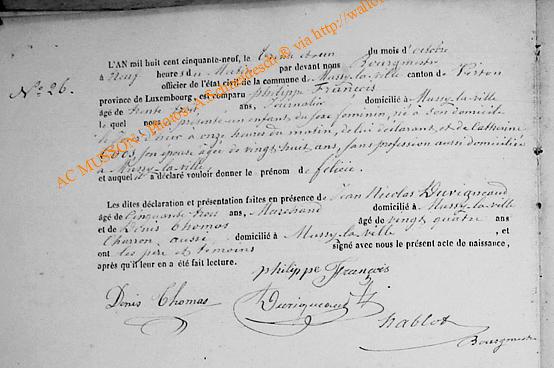 N.º 26.
L'AN mil huit cent cinquante-neuf, le trente et un du mois d'octobre
à neuf heures du matin par devant nous Bourgmestre
officier de l'état civil de la commune de Mussy-la-ville canton de Virton
province de Luxembourg, est comparu philippe François
âgé de trente trois ans, Journalier domicilié à Mussy-la-ville
le quel nous a présenté un enfant du sexe féminin, né à son domicile
à onze heures du matin, de lui déclarant et de Catherine
son épouse âgée de vingt huit ans, sans profession aussi domiciliée
à Mussy-la-ville
et auquel il a déclaré vouloir donner le prénom de félicie.
Les dites déclaration et présentation faites en présence de Jean Nicolas Duriqueaud
âgé de Cinquante trois ans, Marchand domicilié à Mussy-la-ville
et de Denis Thomas âgé de vingt quatre ans
Charron aussi domicilié à Mussy-la-ville , et
ont les père et témoins signé avec nous le présent acte de naissance,
après qu'il leur en a été fait lecture.
philippe François
Denis Thomas
Duriqueaud
Nablot
Bourgmestre
AC MUSSON - Photos: A.Schmadesch ® via http://wallo